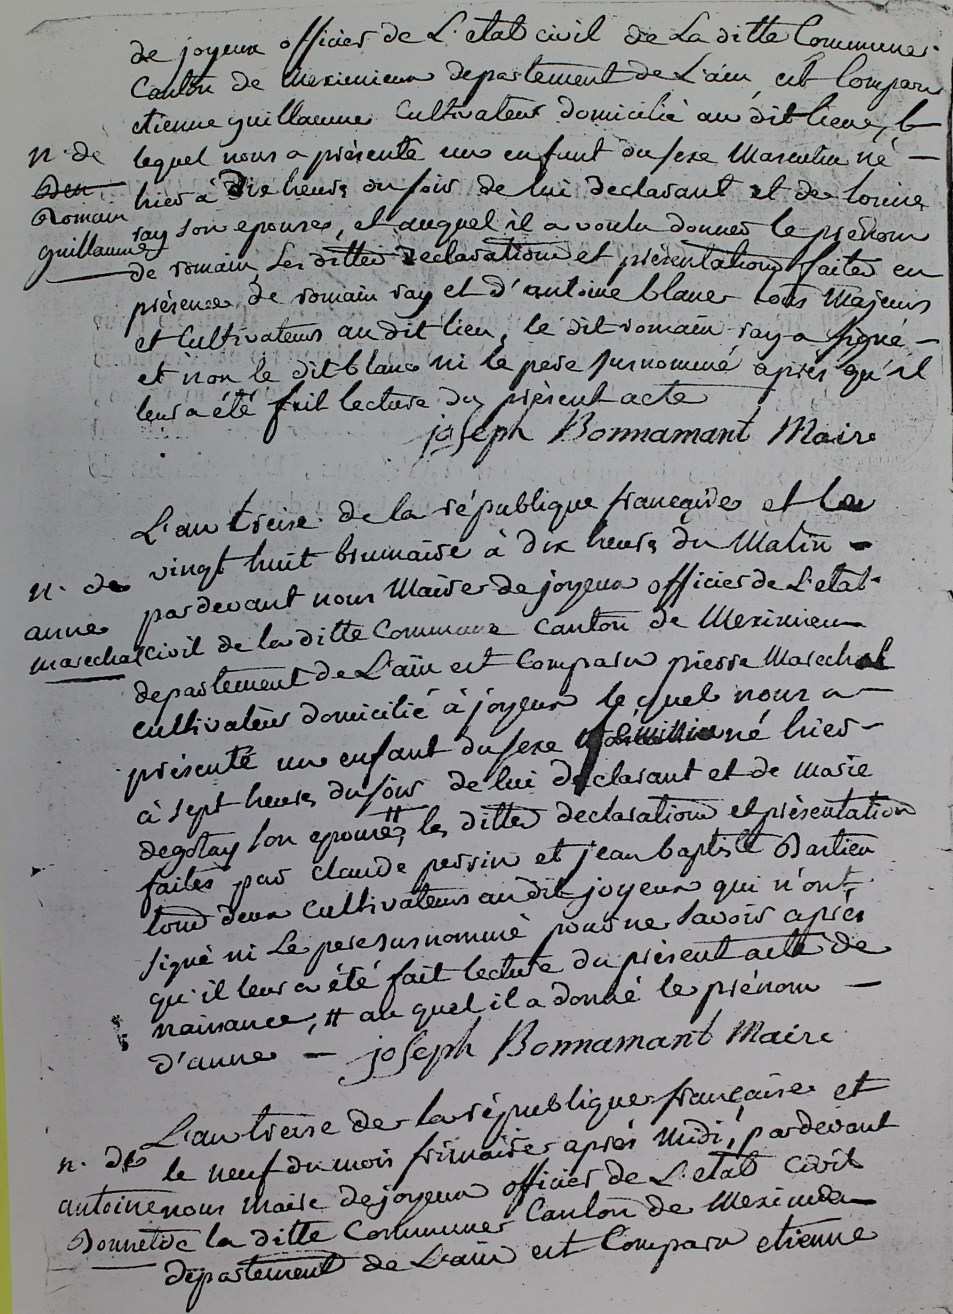 de joyeux officier de L'etat civil de La ditte Commune
Canton de Meximieux departement de L'ain est Comparu
etienne guillaume Cultivateur domicilié au dit lieu,
n. de
lequel nous a présenté un enfant du sexe Masculin né —
hier à Dix heures du soir de lui declarant et de
Romain
ray son epouse, et auquel il a voulu donner le prénom
guillaume
de romain, les dittes declaration et présentation faites en
présence de romain ray et d'antoine blanc tous Majeurs
et Cultivateurs au dit lieu, le dit romain ray a signé —
et non le dit blanc ni le pere surnommé après qu'il
leur a été fait lecture du présent acte
joseph Bonnamant Maire
L'an treise de la république française et le
vingt huit brumaire à dix heures du Matin —
n. de
pardevant nous Maire de joyeux officier de L'etat
anne
marechal
civil de la ditte Commune Canton de Meximieu
departement de L'ain est Comparu pierre Marechal
cultivateur domicilié à joyeux le quel nous a —
présenté un enfant du sexe né hier —
à sept heures du soir de lui declarant et de Marie
degotay son epouse, # les dittes declaration et présentation
faites par claude perrin et jean baptiste
tous deux Cultivateurs au dit joyeux qui n'ont
signé ni Le pere surnommé pour ne Savoir après
qu'il leur a été fait lecture du présent acte de
naissance, # au quel il a donné le prénom —
d'anne — joseph Bonnamant Maire
L'an treise de la république française et
n. de
le neuf du mois frimaire après Midi, pardevant
antoine
nous Maire de joyeux officier de L'etat Civil
Donnet
de la ditte Commune Canton de Meximieu
departement de L'ain est Comparu etienne